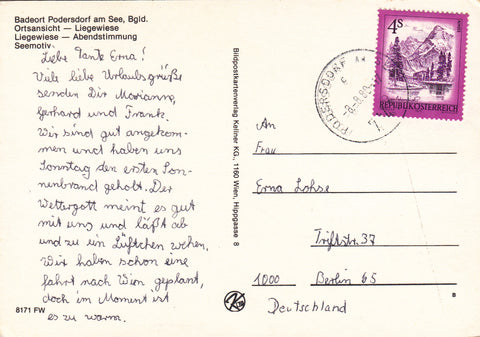 Badeort Podersdorf am See, Bgld.
Ortsansicht — Liegewiese
Liegewiese — Abendstimmung
Seemotiv
Liebe Tante Erna!
Viele liebe Urlaubsgrüße
senden Dir Marianne,
Gerhard und Frank.
Wir sind gut angekom-
men und haben uns
Sonntag den ersten Son-
nenbrand geholt. Der
Wettergott meint es gut
mit uns und läßt ab
und zu ein Lüftchen wehen.
Wir haben schon eine
Fahrt nach Wien geplant,
doch im Moment ist
es zu warm.
8171 FW
Bildpostkartenverlag Kellner KG., 1160 Wien, Hippgasse 8
PODERSDORF AM
4S
REPUBLIK ÖSTERREICH
An
Frau
Erna Lohse
Triftstr. 37
1000 Berlin 65
Deutschland
B